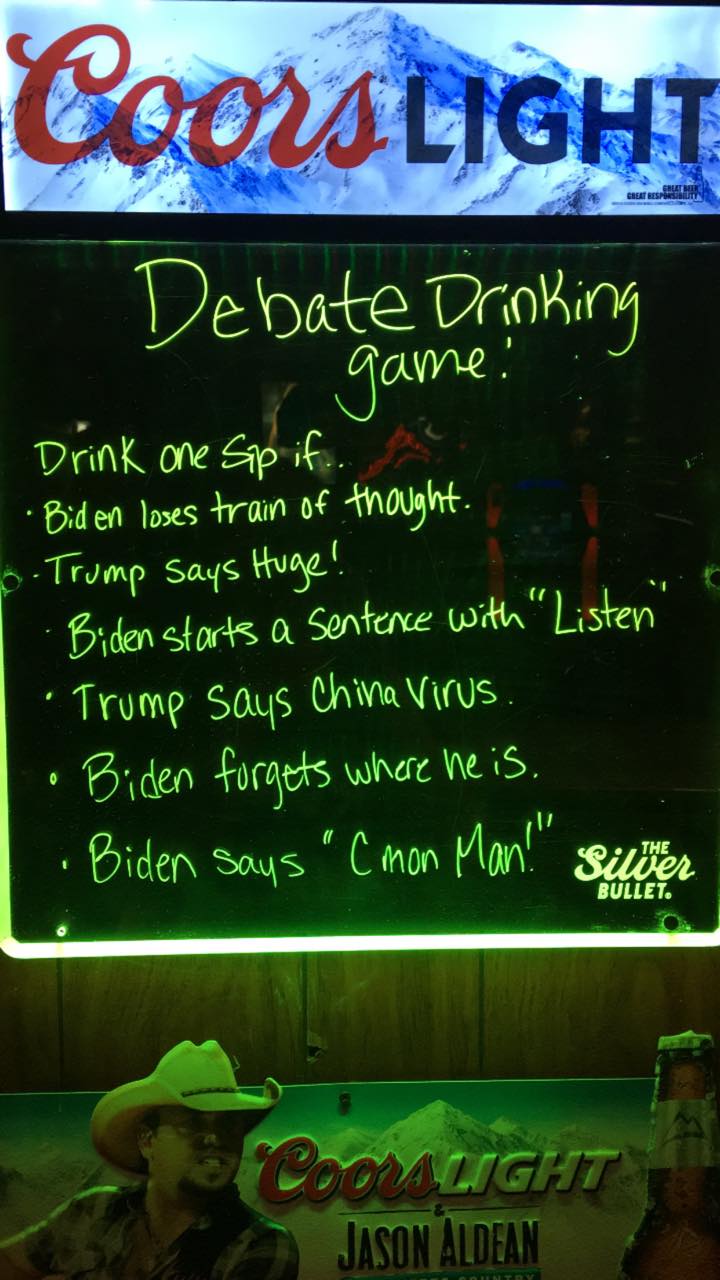 Coors LIGHT
GREAT BEER
GREAT RESPONSIBILITY
Debate Drinking
game!
Drink one Sip if...
· Biden loses train of thought.
· Trump says Huge!
· Biden starts a Sentence with "Listen"
· Trump Says China Virus.
· Biden forgets where he is.
· Biden says "C mon Man!"
THE
Silver
BULLET.
Coors LIGHT
&
JASON ALDEAN
COUNTRY